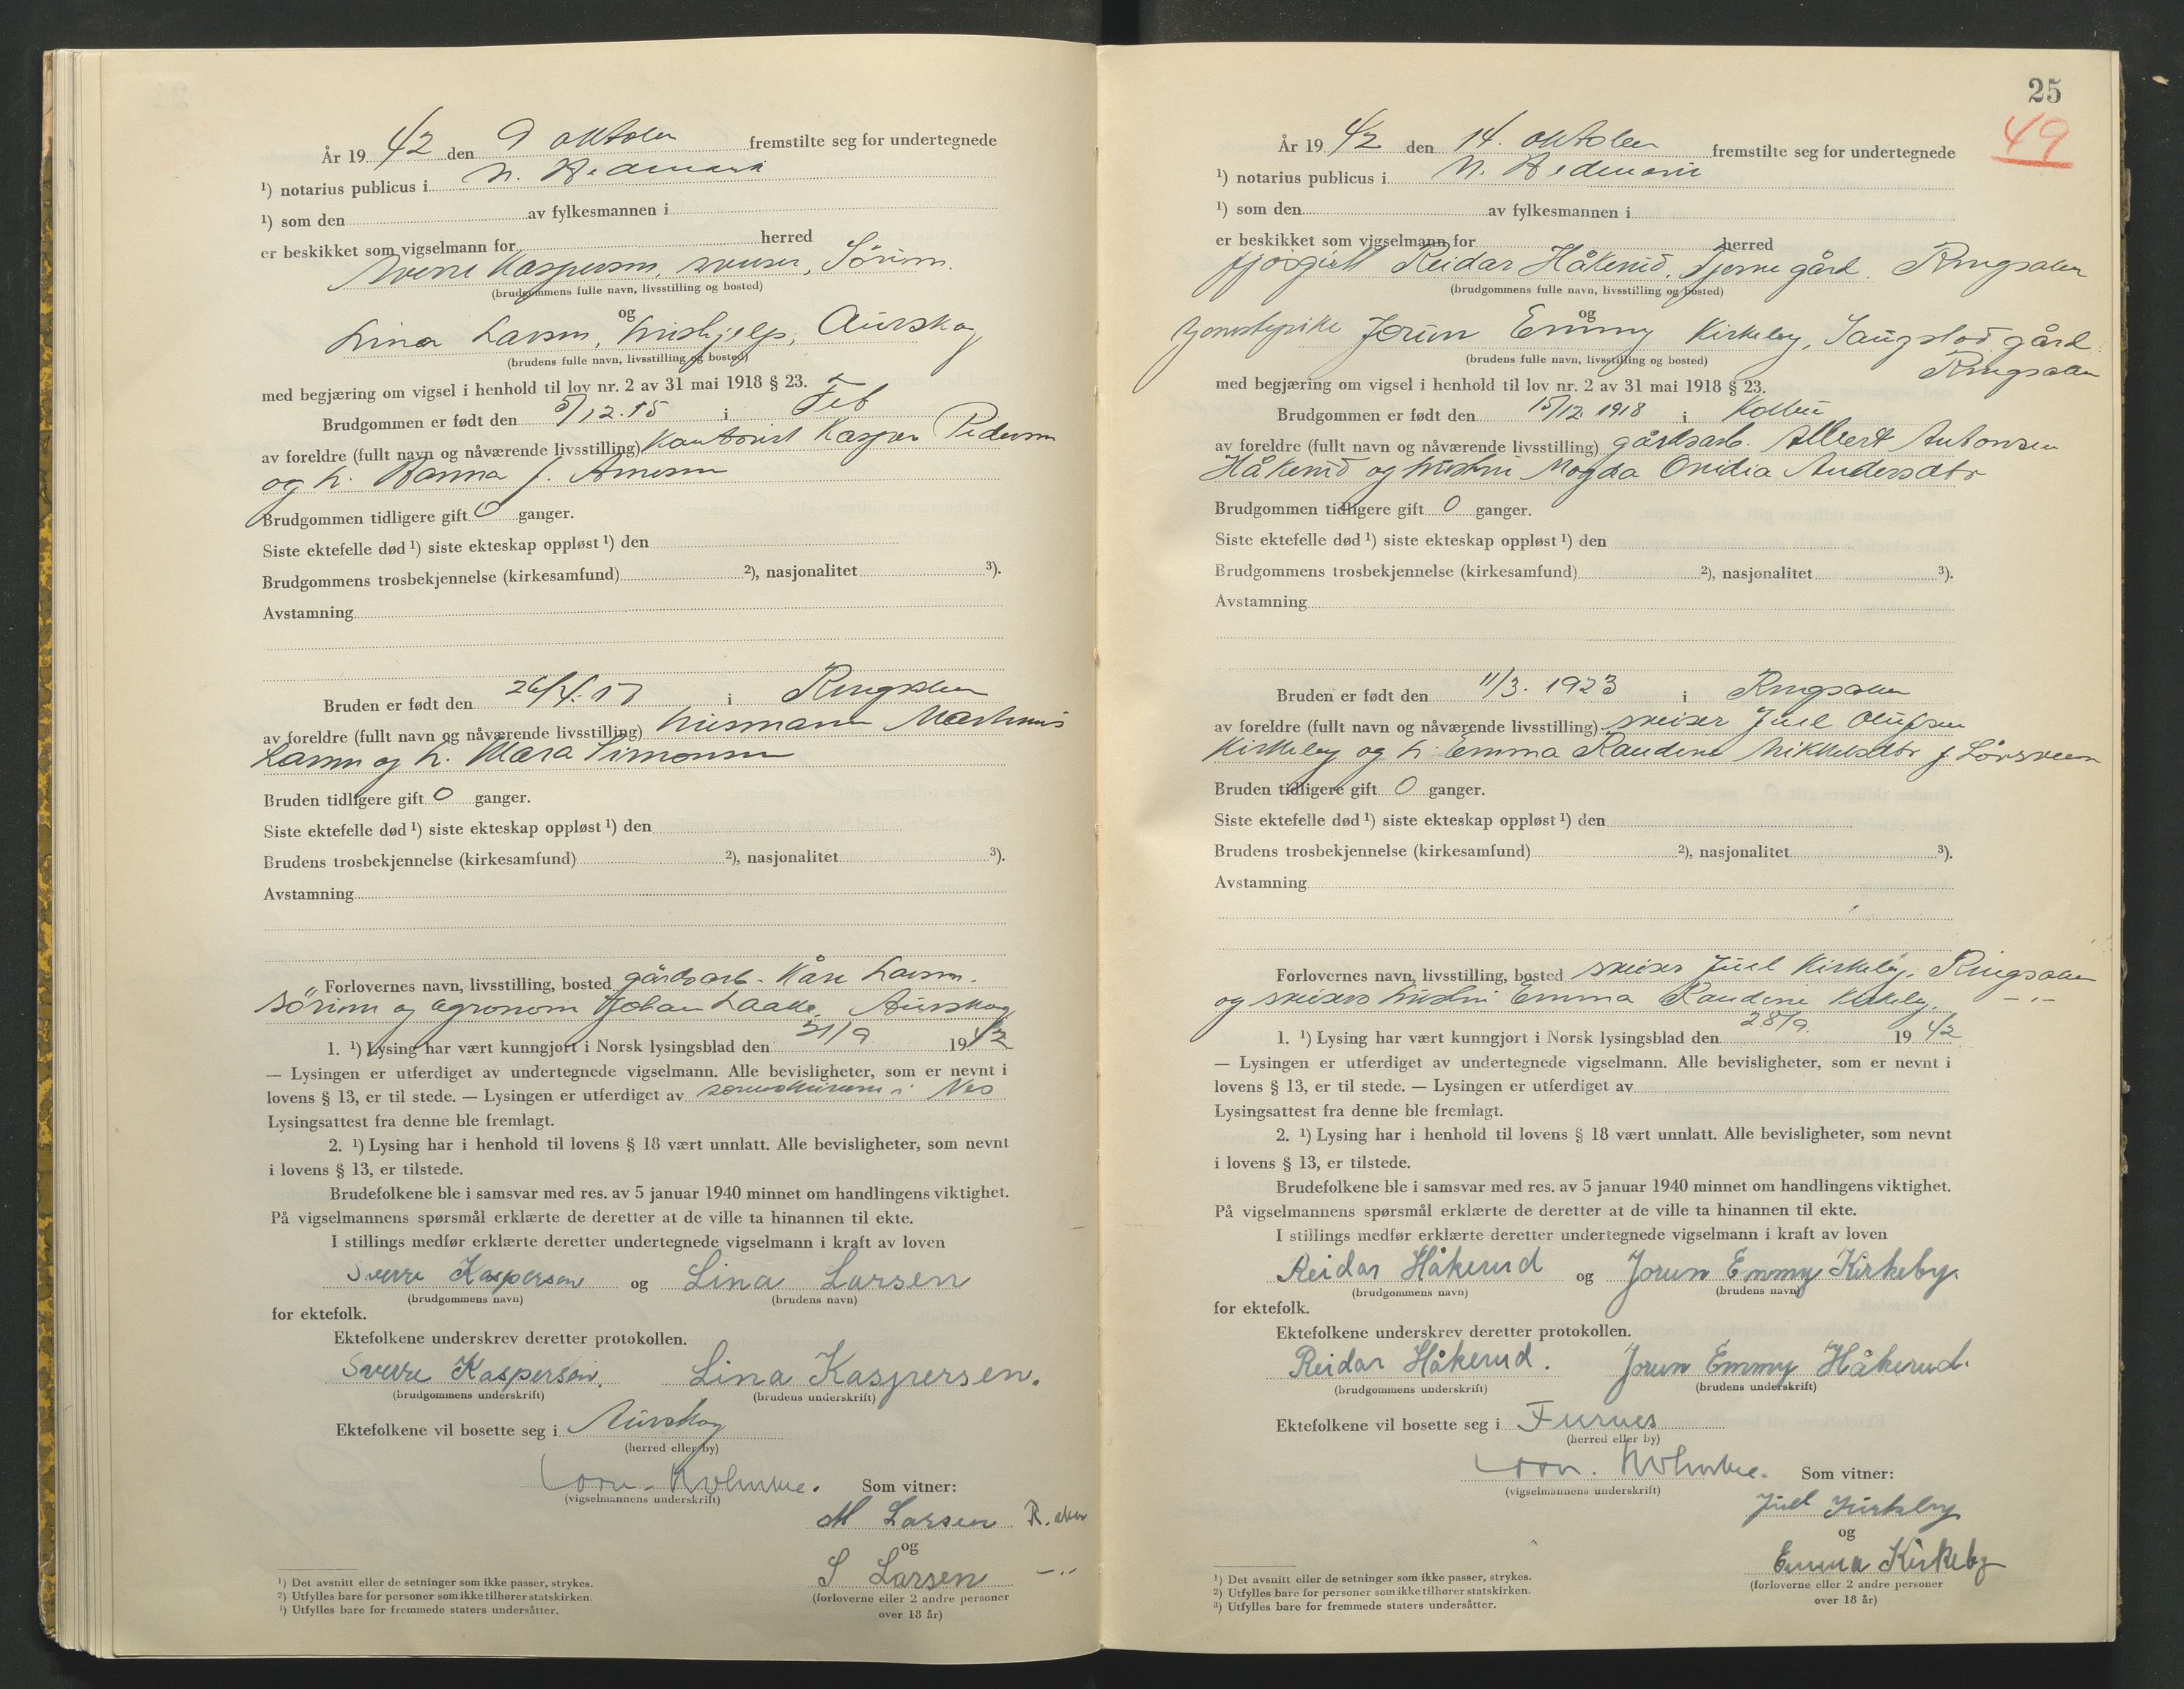 År 19 42 den 9 oktober fremstilte seg for undertegnede
¹) notarius publicus i N. Hedmark
¹) som den av fylkesmannen i
er beskikket som vigselmann for herred
Sverre Kaspersen, sveiser, Sörum.
(brudgommens fulle navn, livsstilling og bosted)
og
Lina Larsen, hushjelp, Aurskog
(brudens fulle navn, livsstilling og bosted)
med begjæring om vigsel i henhold til lov nr. 2 av 31 mai 1918 § 23.
Brudgommen er født den 5/12.15 i Fet
av foreldre (fullt navn og nåværende livsstilling) Kontorist Kasper Pedersen
og h. Hanna f. Arnesen
Brudgommen tidligere gift 0 ganger.
Siste ektefelle død ¹) siste ekteskap oppløst ¹) den
Brudgommens trosbekjennelse (kirkesamfund) ²), nasjonalitet ³).
Avstamning
Bruden er født den i Ringsaker
av foreldre (fullt navn og nåværende livsstilling) husmann Marthinus
Larsen og h. Mara Simonsen
Bruden tidligere gift 0 ganger.
Siste ektefelle død ¹) siste ekteskap oppløst ¹) den
Brudens trosbekjennelse (kirkesamfund) ²), nasjonalitet ³).
Avstamning
Forlovernes navn, livsstilling, bosted gårdsarb. Kåre Larsen.
Sörum og agronom Johan Laake, Aurskog
1. ¹) Lysing har vært kunngjort i Norsk lysingsblad den 21/9 19 42
— Lysingen er utferdiget av undertegnede vigselmann. Alle bevisligheter, som er nevnt i
lovens § 13, er til stede. — Lysingen er utferdiget av i Nes
Lysingsattest fra denne ble fremlagt.
2. ¹) Lysing har i henhold til lovens § 18 vært unnlatt. Alle bevisligheter, som nevnt
i lovens § 13, er tilstede.
Brudefolkene ble i samsvar med res. av 5 januar 1940 minnet om handlingens viktighet.
På vigselmannens spørsmål erklærte de deretter at de ville ta hinannen til ekte.
I stillings medfør erklærte deretter undertegnede vigselmann i kraft av loven
Sverre Kaspersen og Lina Larsen
(brudgommens navn) (brudens navn)
for ektefolk.
Ektefolkene underskrev deretter protokollen.
Sverre Kaspersen. Lina Kaspersen.
(brudgommens underskrift) (brudens underskrift)
Ektefolkene vil bosette seg i Aurskog
(herred eller by)
Som vitner:
(vigselmannens underskrift)
M Larsen R.aker
og
S Larsen —"—
(forloverne eller 2 andre personer
over 18 år)
¹) Det avsnitt eller de setninger som ikke passer, strykes.
²) Utfylles bare for personer som ikke tilhører statskirken.
³) Utfylles bare for fremmede staters undersåtter.
25
49
År 19 42 den 14. oktober fremstilte seg for undertegnede
¹) notarius publicus i N. Hedmark
¹) som den av fylkesmannen i
er beskikket som vigselmann for herred
fjösgutt Reidar Håkerud, Tjerne gård Ringsaker
(brudgommens fulle navn, livsstilling og bosted)
og
Jorun Emmy Kirkeby, Saugstad gård
(brudens fulle navn, livsstilling og bosted)
Ringsaker
med begjæring om vigsel i henhold til lov nr. 2 av 31 mai 1918 § 23.
Brudgommen er født den 15/12 1918 i Kolbu
av foreldre (fullt navn og nåværende livsstilling) gårdsarb. Albert Antonsen
Håkerud og hustru Magda Onidia Andersdtr
Brudgommen tidligere gift 0 ganger.
Siste ektefelle død ¹) siste ekteskap oppløst ¹) den
Brudgommens trosbekjennelse (kirkesamfund) ²), nasjonalitet ³).
Avstamning
Bruden er født den 11/3. 1923 i Ringsaker
av foreldre (fullt navn og nåværende livsstilling) sveiser Juel Olufsen
Kirkeby og h. Emma Randine Mikkelsdtr f. Lörsveen
Bruden tidligere gift 0 ganger.
Siste ektefelle død ¹) siste ekteskap oppløst ¹) den
Brudens trosbekjennelse (kirkesamfund) ²), nasjonalitet ³).
Avstamning
Forlovernes navn, livsstilling, bosted sveiser Juel Kirkeby, Ringsaker
og sveisers hustru Emma Randine Kirkeby, —"—
1. ¹) Lysing har vært kunngjort i Norsk lysingsblad den 28/9. 19 42
— Lysingen er utferdiget av undertegnede vigselmann. Alle bevisligheter, som er nevnt i
lovens § 13, er til stede. — Lysingen er utferdiget av
Lysingsattest fra denne ble fremlagt.
2. ¹) Lysing har i henhold til lovens § 18 vært unnlatt. Alle bevisligheter, som nevnt
i lovens § 13, er tilstede.
Brudefolkene ble i samsvar med res. av 5 januar 1940 minnet om handlingens viktighet.
På vigselmannens spørsmål erklærte de deretter at de ville ta hinannen til ekte.
I stillings medfør erklærte deretter undertegnede vigselmann i kraft av loven
Reidar Håkerud og Jorun Emmy Kirkeby.
(brudgommens navn) (brudens navn)
for ektefolk.
Ektefolkene underskrev deretter protokollen.
Reidar Håkerud. Jorun Emmy Håkerud.
(brudgommens underskrift) (brudens underskrift)
Ektefolkene vil bosette seg i Furnes
(herred eller by)
Som vitner:
(vigselmannens underskrift)
Juel Kirkeby
og
Emma Kirkeby
(forloverne eller 2 andre personer
over 18 år)
¹) Det avsnitt eller de setninger som ikke passer, strykes.
²) Utfylles bare for personer som ikke tilhører statskirken.
³) Utfylles bare for fremmede staters undersåtter.